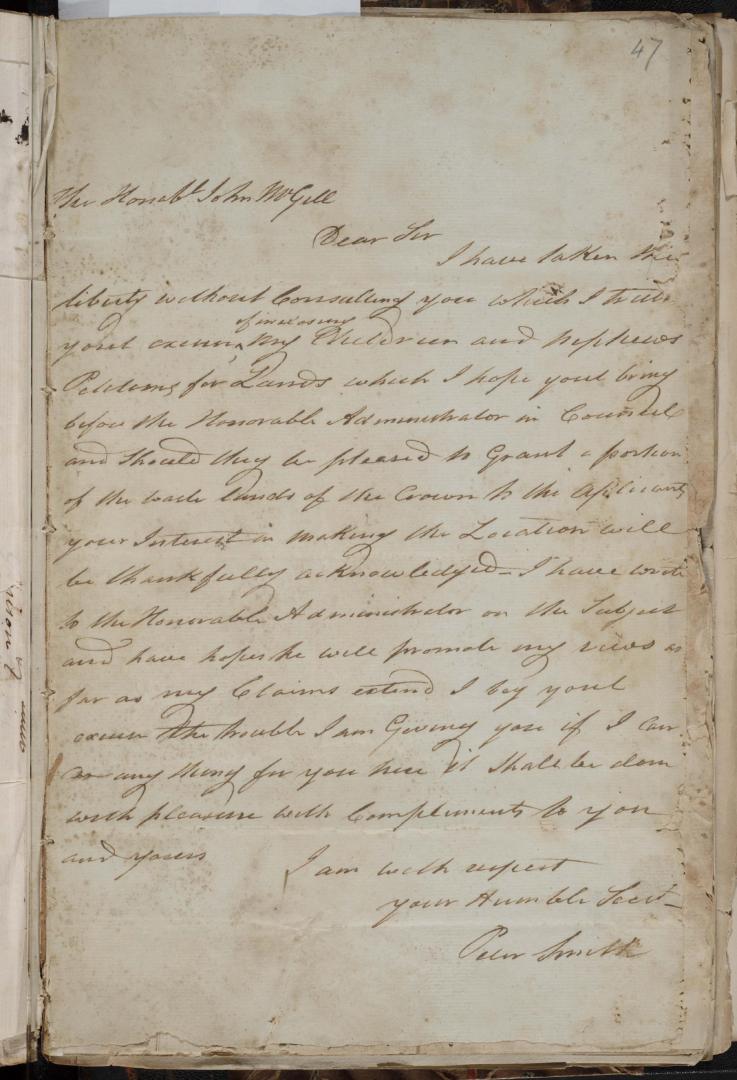 47
The Honab.t John McGill
Dear Sir
I have taken the
liberty without Consulting you which I trust
youl excuse of inclosing My Children and Nephews
Petitions for Lands which I hope youl bring
before the Honorable Administrator in Council
and should they be pleased to Grant a portion
of the waste lands of the Crown to the Aplicants
your Interest in making the Location will
be thankfully acknowledged – I have wrote
to the Honorable Administrator on the Subject
and have hopes he will promote my views as
far as my Claims extend I beg youl
excuse the trouble I am Giving you if I can
any thing for you here it Shall be done
with pleasure with Compliments to you
and yours
I am with respect
your Humble Servt –
Peter Smith